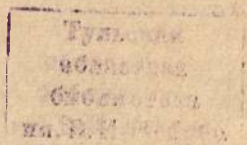 Тульская
областная
библиотека
им. В. И. Ленина